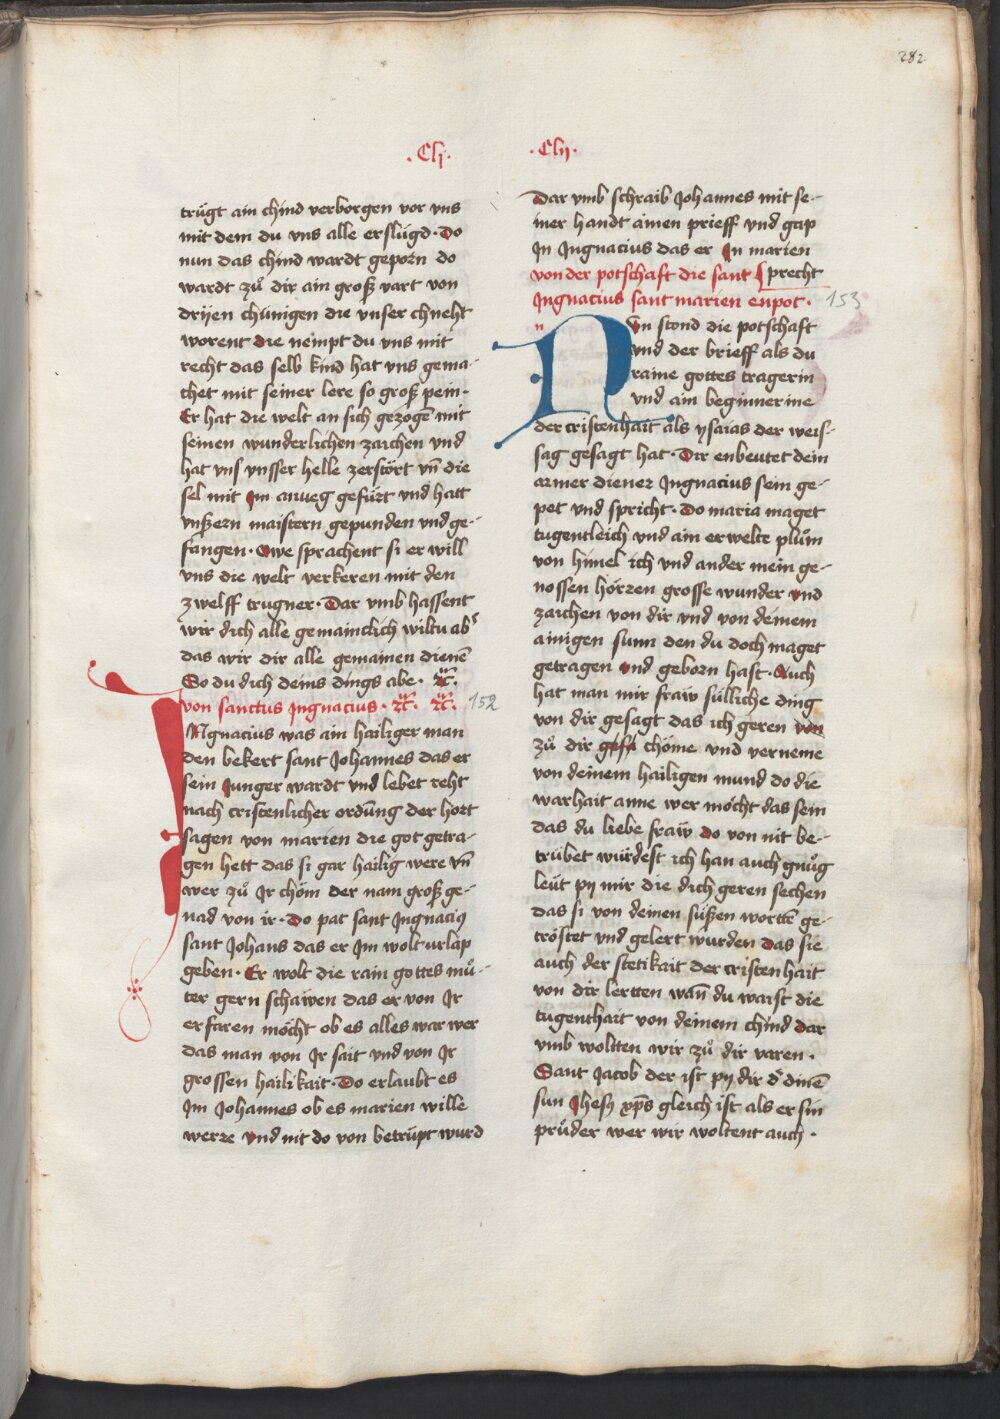 282
·Clj·
trügt ain chind verborgen vor vns
mit dem du vns alle erslügd· Do
nun das chind wardt geporn do
wardt zů dir ain groß vart von
drÿen chünigen die vnser chneht
worent die nempt du vns mit
recht das selb kind hat vns gema-
chet mit seiner lere so groß pein·
Er hat die welt an sich gezogē mit
seinen wunderlichen zaichen vnd
hat vns vnsser helle zerstört vn̄ die
sel mit Jm anweg gefürt vnd hatt
vnßern maistern gepunden vnd ge-
fangen· Owe sprachent si er will
vns die welt verkeren mit den
zwelff trugner· Dar vmb hassent
wir dich alle gemainclich wiltu ab
das wir dir alle gemainen dienē
So du dich deins dings abe· ꝛc.
von sanctus Jngnacius· ꝛc. ꝛc. 152
JNgnacius was ain hailiger man
den bekert sant Johannes das er
sein Junger wardt vnd lebet reht
nach cristenlicher ordūng der hort
sagen von marien die got getra-
gen hett das si gar hailig were vn̄
wer zů Jr chöm der nam groß ge-
nad von ir· Do pat sant Jngnaciꝰ
sant Johans das er Jm wolt urlap
geben· Er wolt die rain gottes mů-
ter gern schawen das er von Jr
erfaren möcht ob es alles war wer
das man von Jr sait vnd von Jr
grossen hailikait· Do erlaubt es
Jm Johannes ob es marien wille
werre vnd nit do von betrüpt wurd
·Clij·
Dar vmb schraib Johannes mit se-
iner handt ainen prieff vnd gap
Jn Jngnacius das er Jn marien
von der potschaft die sant precht
Jngnacius sant marien enpot· 153
n
NVn stond die potschaft
vnd der brieff als du
raine gottes tragerin
vnd ain beginnerine
der cristenhait als ysaias der weis-
sag gesagt hat· Dir enbeutet dein
armer diener Jngnacius sein ge-
pet vnd spricht· Do maria maget
tugentleich vnd ain erwelte plům
von himel ich vnd ander mein ge-
nossen hörzen grosse wunder vnd
zaichen von dir vnd von deinem
ainigen sunn den du doch maget
getragen vnd geborn hast· Auch
hat man mir fraw sülliche ding
von dir gesagt das ich geren von
zů dir chöme vnd verneme
von deinem hailigen mund do die
warhait anne wer möcht das sein
das du liebe fraw do von nit be-
trübet würdest ich han auch gnůg
leüt pÿ mir die dich geren sechen
das si von deinen süßen wortē ge-
tröstet vnd gelert wurden das sie
auch der stetikait der cristenhait
von dir lertten wan̄ du waist die
tugenthait von deinem chind dar
vmb woltten wir zů dir varen·
Sant Jacob der ist pÿ dir d dinē
sun Jhesꝫ xp̄s gleich ist als er sin
průder wer wir woltent auch·